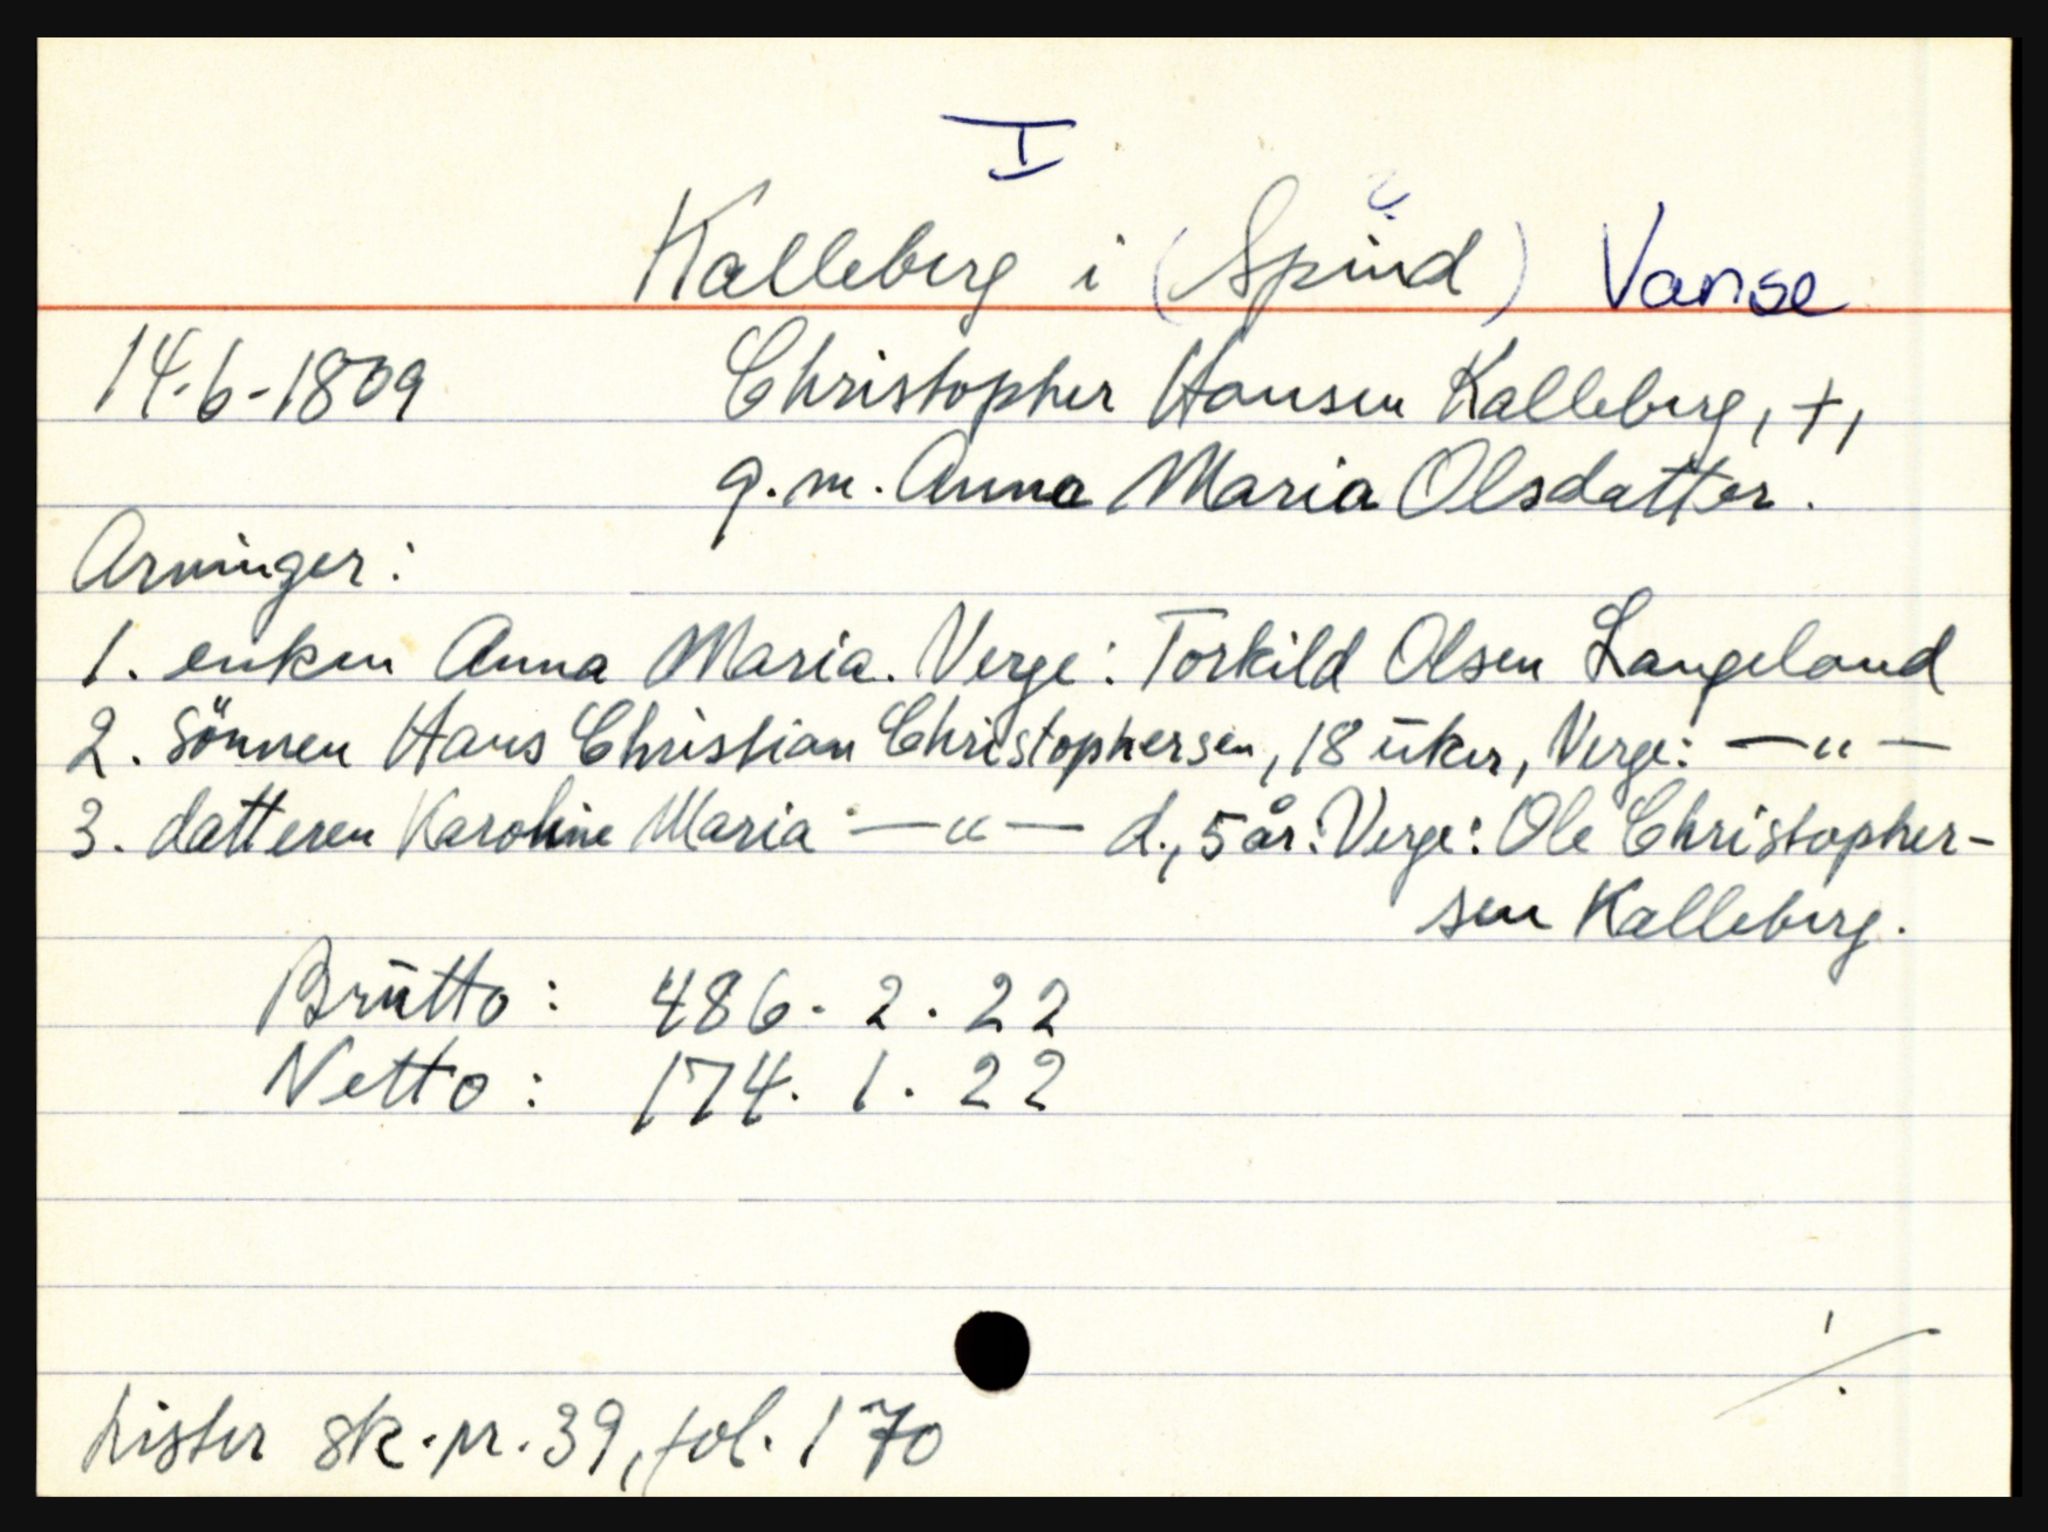 I
Kalleberg i (Spind) Vanse
14.6-1809 Christopher Hansen Kalleberg, †,
g.m. Anna Maria Olsdatter.
Arvinger:
1. enken Anna Maria. Verge: Torkild Olsen Langeland
2. Sönnen Hans Christian Christophersen, 18 uker, Verge: —"—
3. datteren Karoline Maria —"— d., 5 år: Verge: Ole Christopher-
sen Kalleberg.
Brutto: 486. 2. 22
Netto: 174. 1. 22
Lister sk.pr. 39, fol. 170